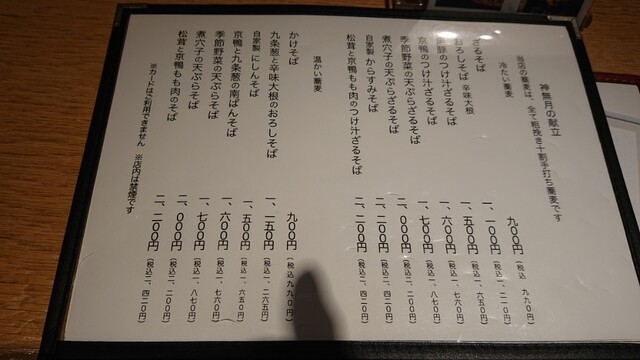 神無月の献立
当店の蕎麦は、全て粗挽き十割手打ち蕎麦です
冷たい蕎麦
ざるそば 九〇〇円（税込 九九〇円）
おろしそば 辛味大根 一、一〇〇円（税込一、二一〇円）
豚のつけ汁ざるそば 一、五〇〇円（税込一、六五〇円）
京鴨のつけ汁ざるそば 一、六〇〇円（税込一、七六〇円）
季節野菜の天ぷらざるそば 一、七〇〇円（税込一、八七〇円）
煮穴子の天ぷらざるそば 二、〇〇〇円（税込二、二〇〇円）
自家製 からすみそば 二、二〇〇円（税込二、四二〇円）
松茸と京鴨もも肉のつけ汁ざるそば 二、二〇〇円（税込二、四二〇円）
温かい蕎麦
かけそば 九〇〇円（税込 九九〇円）
九条葱と辛味大根のおろしそば 一、一五〇円（税込一、二六五円）
自家製 にしんそば 一、五〇〇円（税込一、六五〇円）
京鴨と九条葱の南ばんそば 一、六〇〇円（税込一、七六〇円）
季節野菜の天ぷらそば 一、七〇〇円（税込一、八七〇円）
煮穴子の天ぷらそば 二、〇〇〇円（税込二、二〇〇円）
松茸と京鴨もも肉のそば 二、二〇〇円（税込二、四二〇円）
※カードはご利用できません ※店内は禁煙です